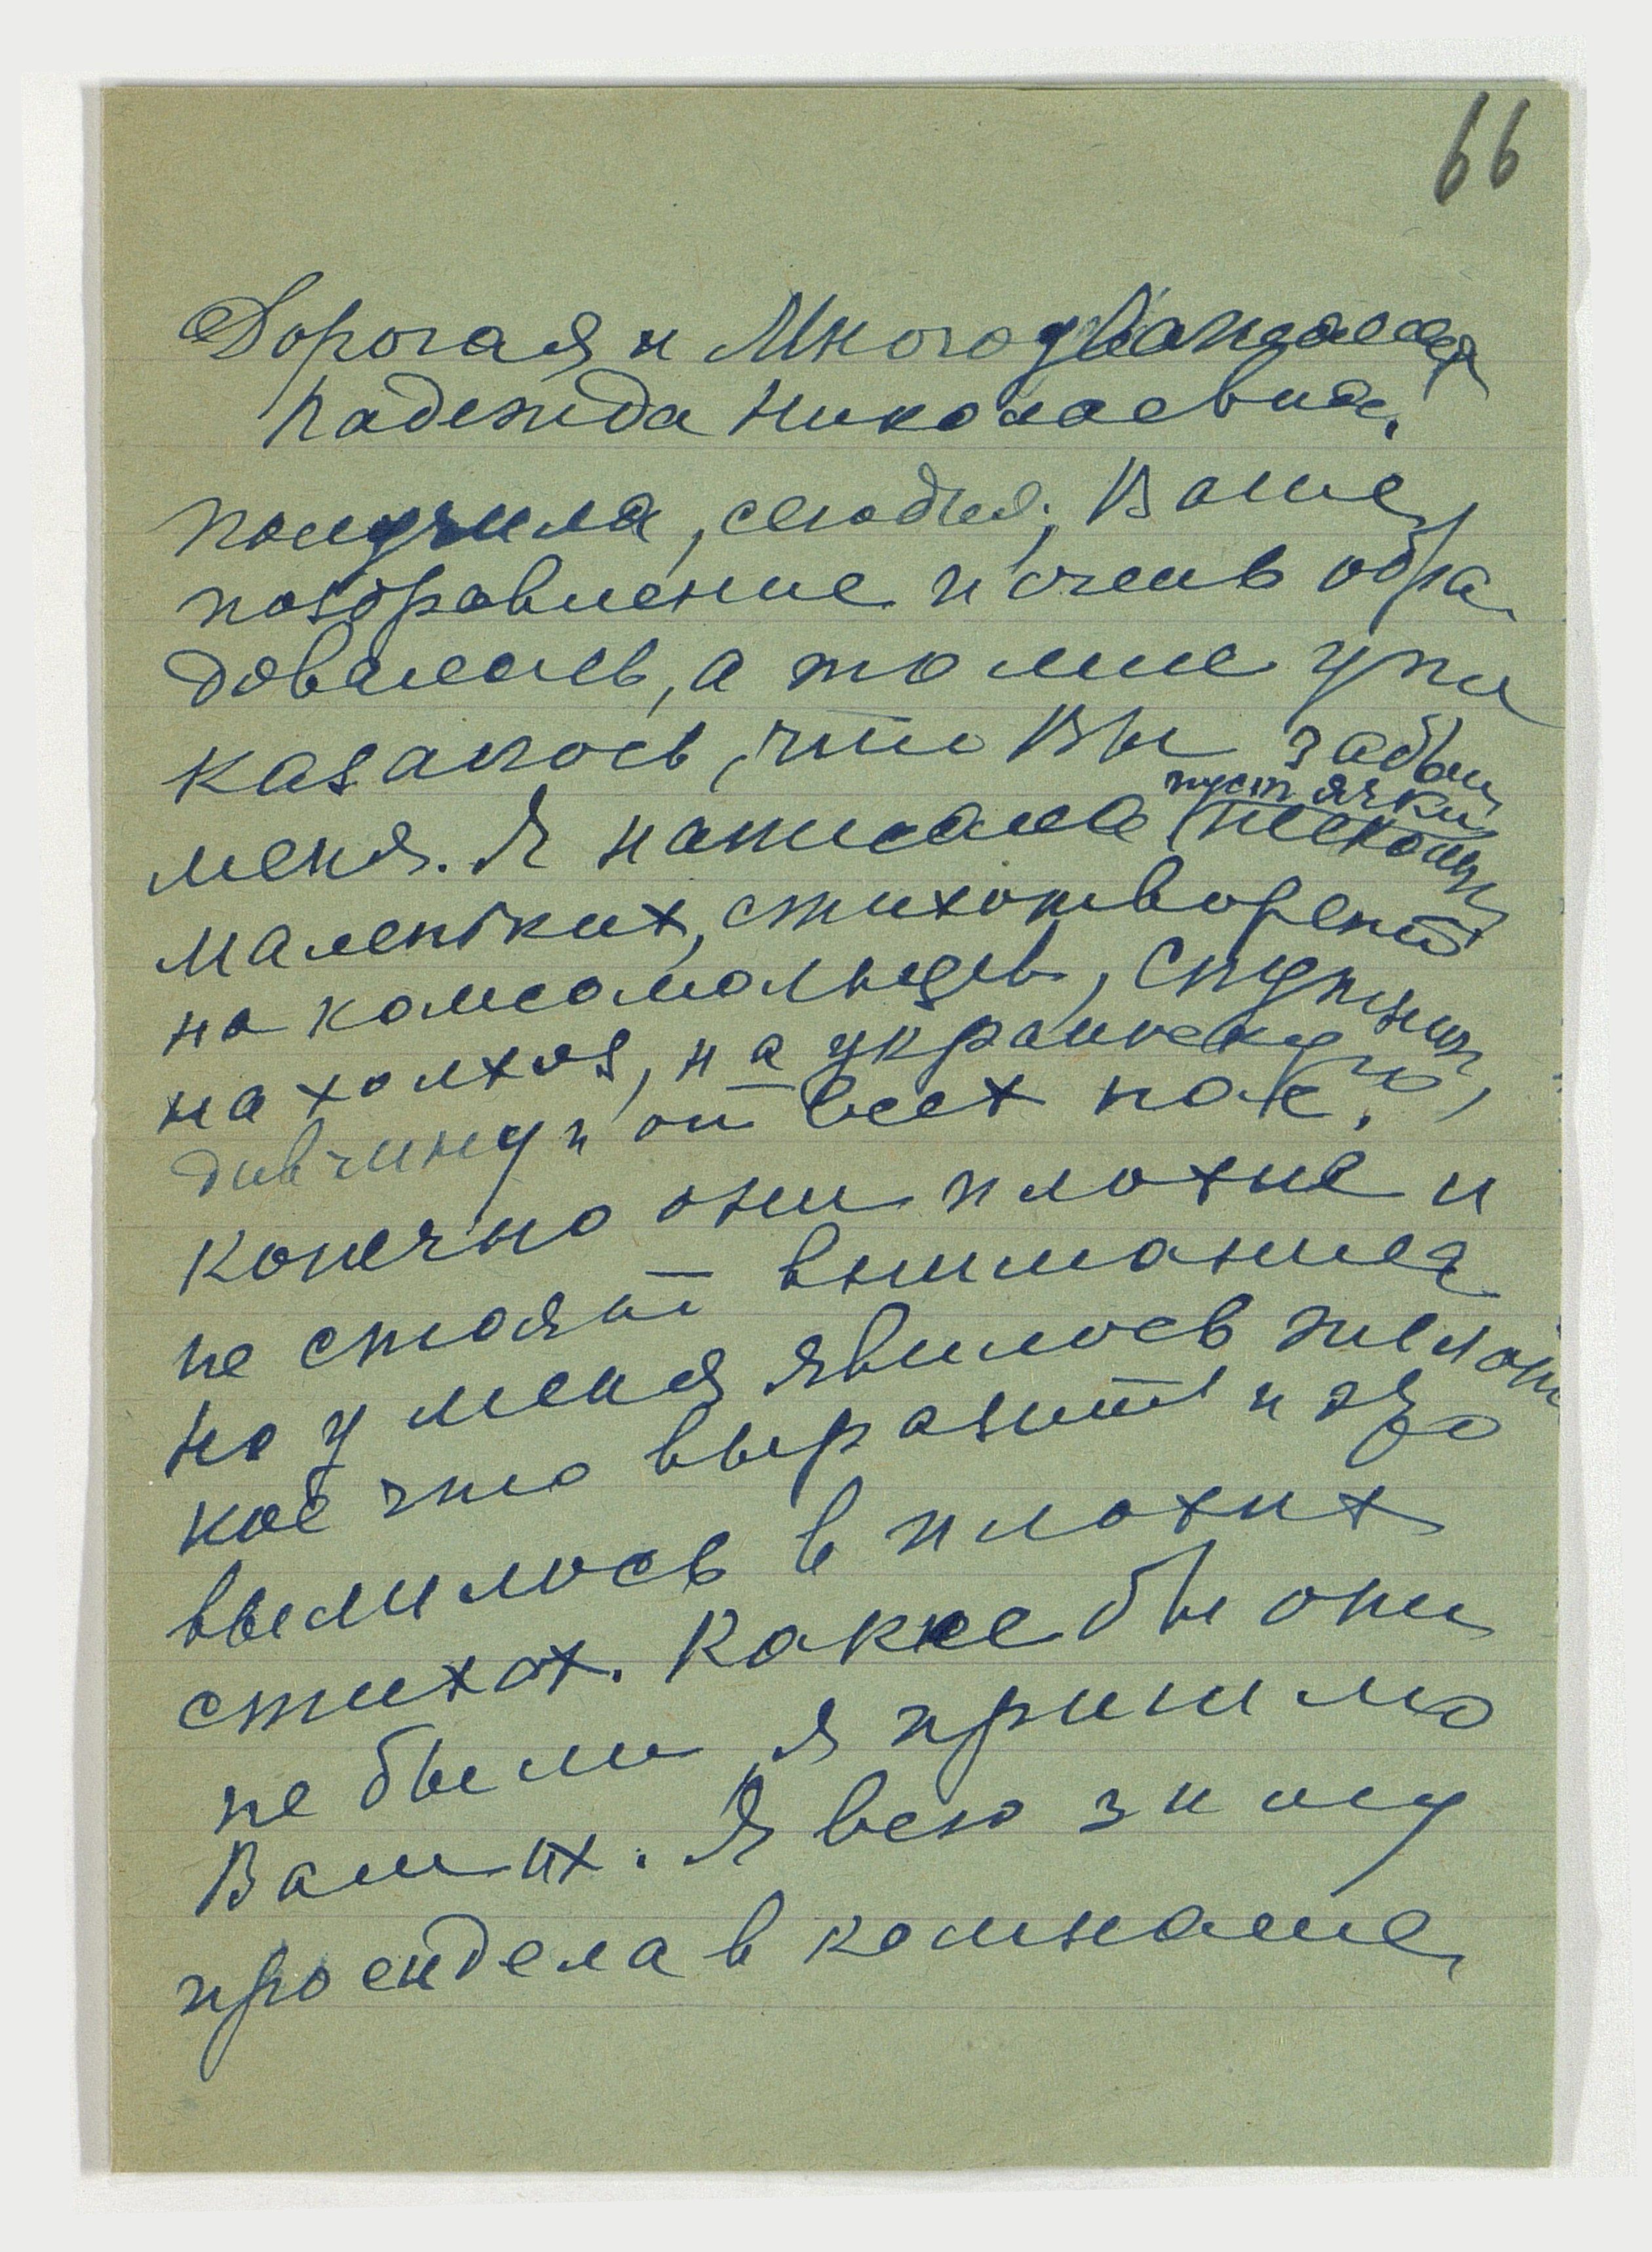 66
Дорогая и Многоуважаемая
Надежда Николаевна,
получила, сегодня, Ваше
поздравление и очень обра-
довалась, а то мне уж
казалось, что Вы забыли
пустячки
меня. Я написала (несколько
маленьких, стихотворений
на комсомольцев, спутник,
на колхоз, на украинскую,
дивчину и от всех нас.
Конечно они плохие и
не стоят внимания
но у меня явилось желан
кое что выразить и это
вылилось в плохих
стихах. Какие бы они
не были, я пришлю
Вам их. Я всю зиму
просидела в комнате,